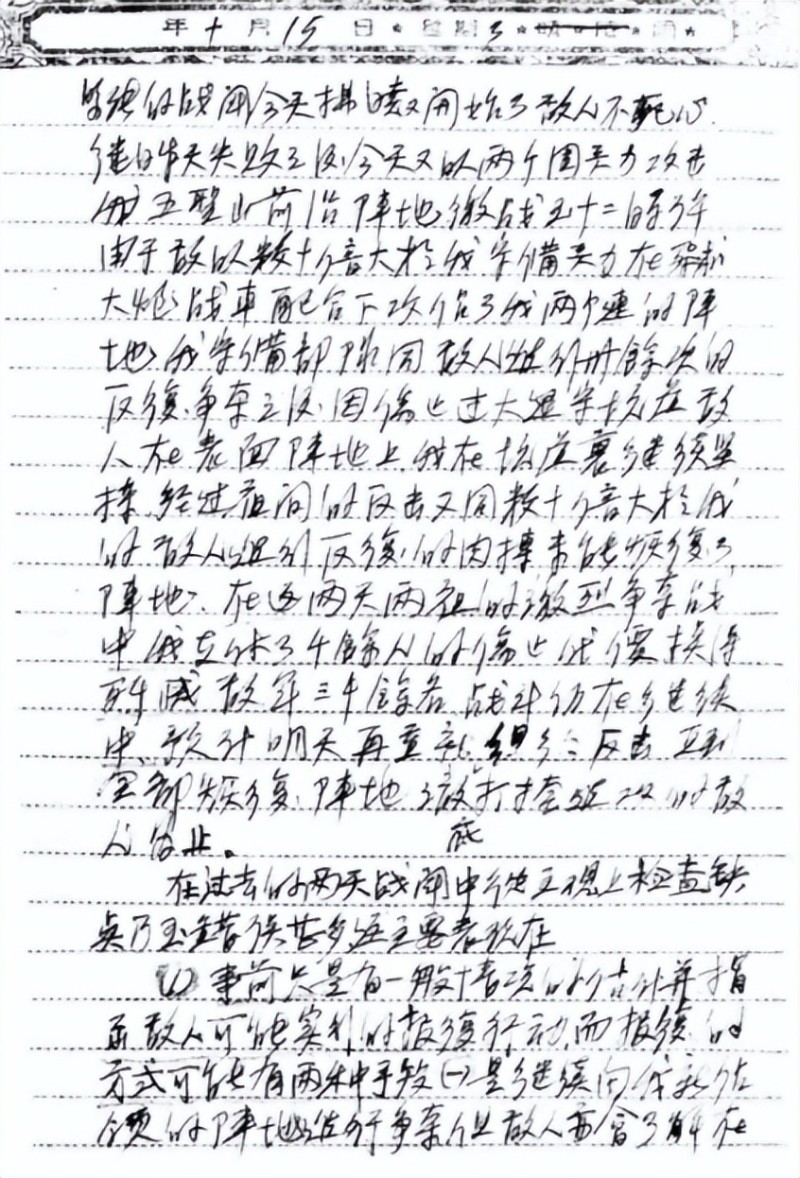 年十月15日 星期3
坚强的战闘今天拂晓又开始了敌人不死心
继昨天失败之后今天又以两个团兵力攻击
我五聖山前沿阵地激战至十二时许
由于敌以数十倍大於我守備兵力在飛机
大炮战車配合下攻佔了我两个連的阵
地我守備部隊同敌人進行卅餘次的
反復争奪之后因傷亡过大退守坑道敌
人在表面阵地上我在坑道裏继续坚
持经过夜间的反击又同数十倍大於我
的敌人進行反復的肉搏未能恢復了
阵地。在这两天两夜的激烈争奪战
中我支付了千餘人的傷亡代價换得
殲滅敌军三千餘名战斗仍在继续
中、预计明天再重新组织反击直到
全部恢復阵地澈打挫進攻的敌
人为止。 底
在过去的两天战闘中從主观上检查缺
点乃至错误甚多这主要表现在
(1)事前只是有一般情况的估计并指
出敌人可能实行的报復行动而报復的
方式可能有两种手段(一)是继续向我新佔
领的阵地進行争奪但敌人亦会了解在